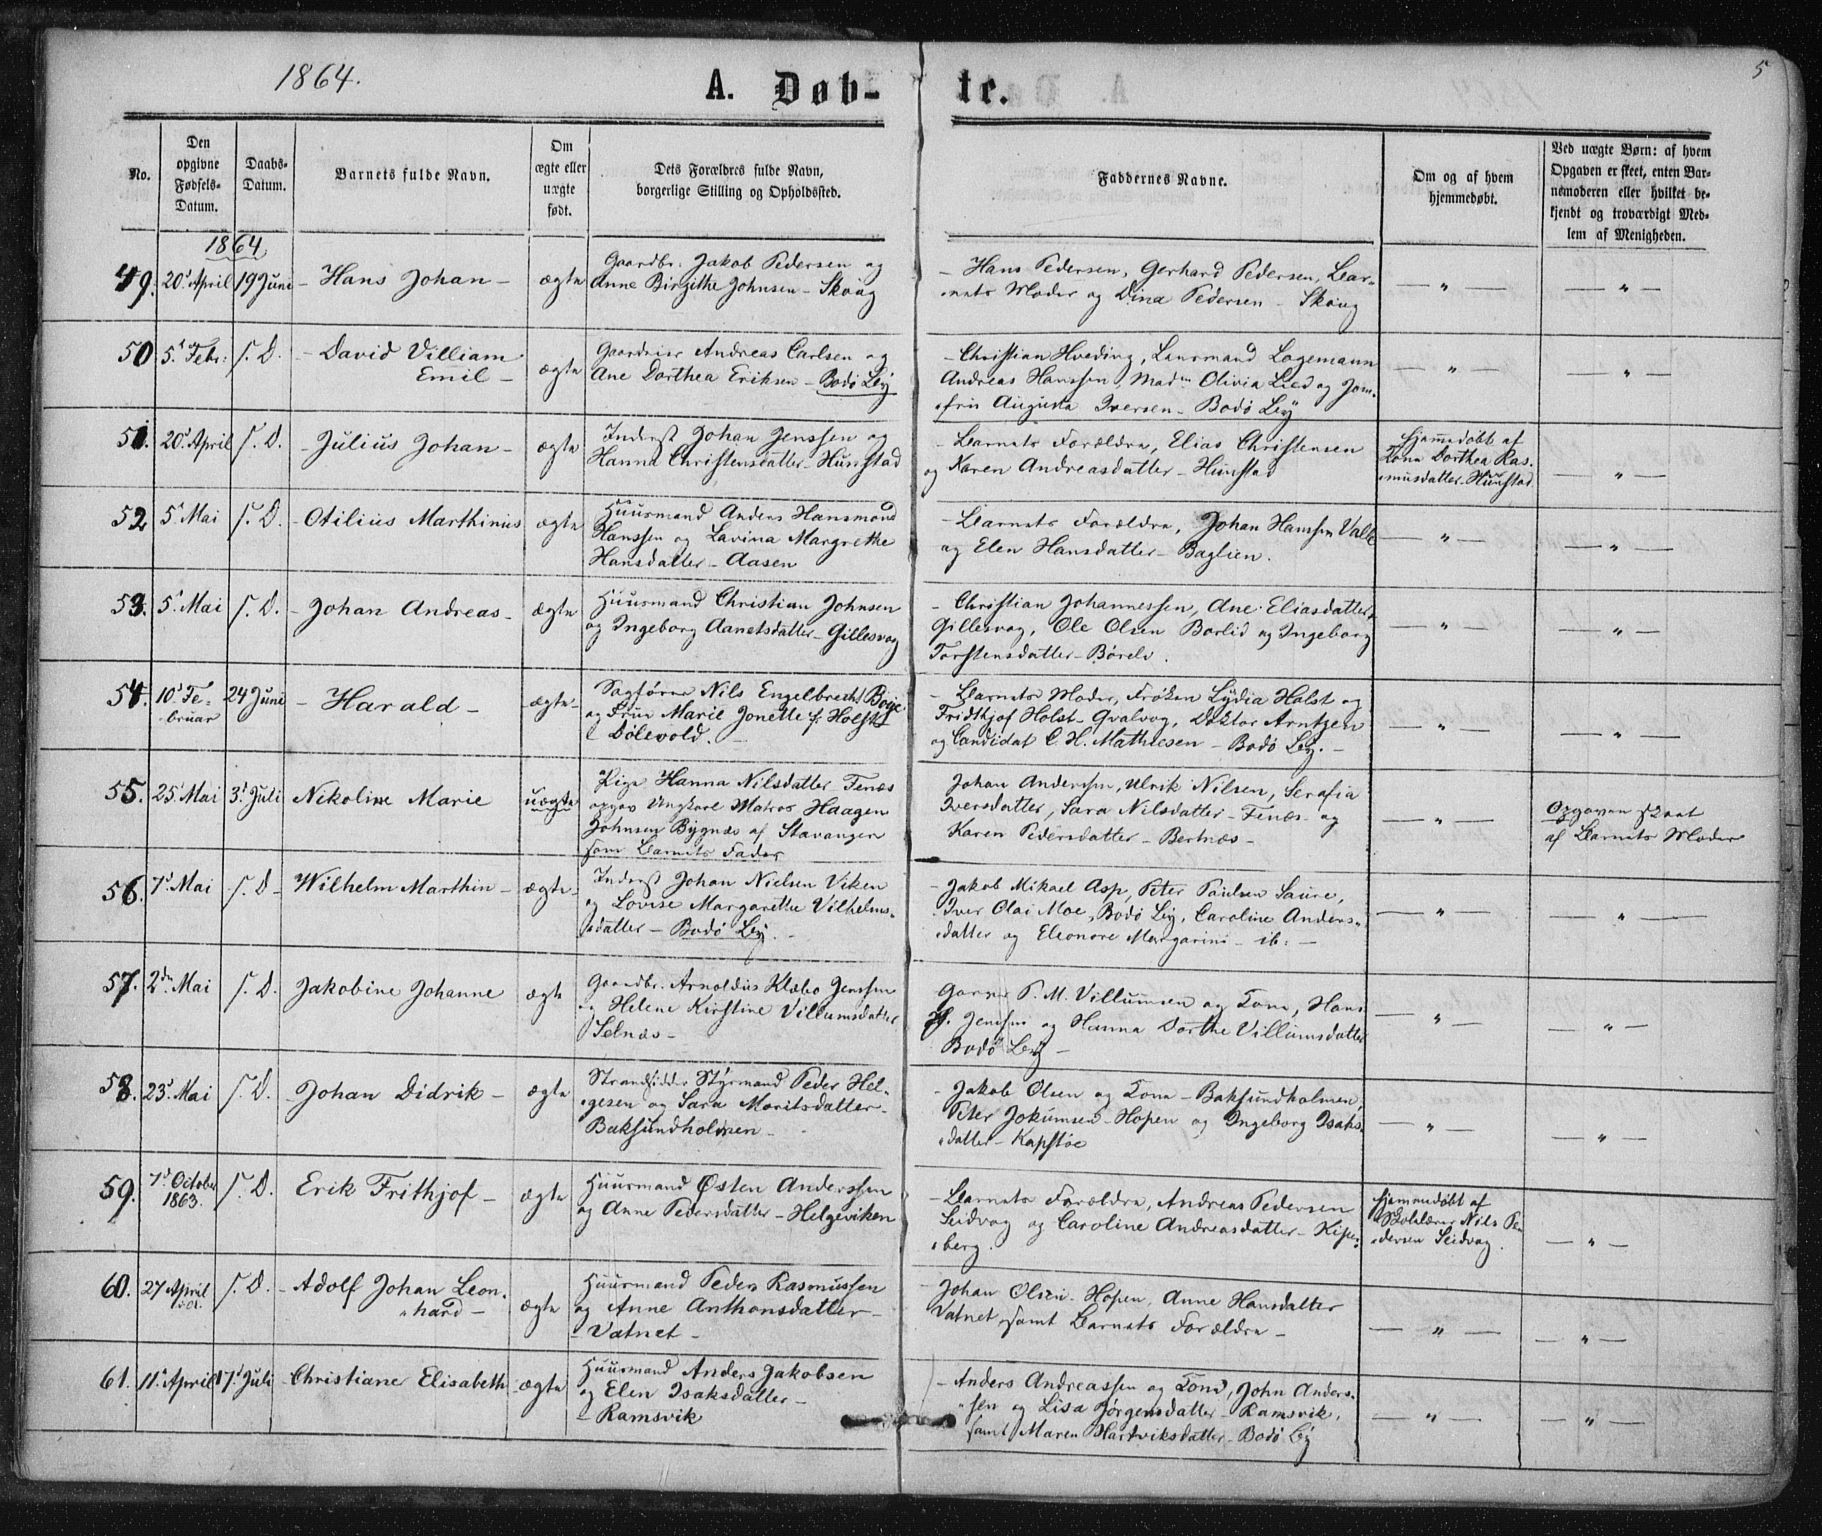 1864.
A. Døb-te.
5
No.
Den opgivne Fødsels-Datum.
Daabs-Datum.
Barnets fulde Navn.
Om ægte eller uægte født.
Dets Forældres fulde Navn, borgerlige Stilling og Opholdssted.
Faddernes Navne.
Om og af hvem hjemmedøbt.
Ved uægte Børn: af hvem Opgaven er skeet, enten Barnemoderen eller hvilket bekjendt og troværdigt Medlem af Menigheden.
1864
49. 20' April 19 Juni - Hans Johan - ægte
Gaardbr. Jakob Pedersen og
Anne Birgithe Johnsen - Skoug
- Hans Pedersen, Gerhard Pedersen, Bar-
nets Moder og Dina Pedersen - Skoug
— " — — " —
50 5' Febr: S. D. - David Villiam
Emil - ægte
Gaardeier Andreas Carlsen og
Ane Dorthea Eriksen - Bodö By
- Christian Hveding, Lensmand Lagemann
Andreas Hanssen, Madm Olivia Lied og Jom-
fru Augusta Iversen - Bodö By
— " — — " —
51. 20' April S. D. - Julius Johan - ægte
Inderst Johan Jenssen og
Hanna Christensdatter - Hunstad
- Barnets Forældre, Elias Christensen
og Karen Andreasdatter - Hunstad
Hjemmedöbt af
Kona Dorthea Ras-
musdatter Hunstad
— " —
52 5' Mai S. D. - Otilius Marthinus ægte
Huusmand Anders Hansmond
Hanssen og Lavina Margrethe
Hansdatter - Aasen
- Barnets Forældre, Johan Hanssen Valle
og Elen Hansdatter - Baglien.
— " — — " —
53. 5' Mai S. D. - Johan Andreas - ægte
Huusmand Christian Johnsen
og Ingeborg Aanetsdatter - Gillesvog
- Christian Johannessen, Ane Eliasdatter
Gillesvog, Ole Olsen Borlid og Ingeborg
Torstensdatter - Börelv.
— " — — " —
54. 10' Fe-
bruar 24 Juni - Harald - ægte
Sagförer Nils Engelbrecht Boye
og Frue Marie Jonette f: Holst
Dolevold. -
- Barnets Moder, Fröken Lydia Holst og
Fridthjof Holst - Qvalvog, Doktor Arntzen
og Candidat C. H. Mathiesen - Bodö By. -
— " — — " —
55. 25' Mai 3' Juli Nikoline Marie uægte
Pige Hanna Nilsdatter Fenæs
opgav Ungkarl Matros Haagen
Johnsen Bygnæs af Stavanger
som Barnets Fader
Johan Anderssen, Ulrik Nilsen, Serafia
Iversdatter, Sara Nilsdatter - Fenæs og
Karen Pedersdatter - Bertnæs -
— " —
Opgaven skeet
af Barnets Moder
56. 7' Mai S. D - Wilhelm Marthin - ægte
Inderst Johan Nielsen Viken
og Lovise Margarethe Vilhelms-
datter - Bodö By. -
- Jakob Mikael Asp, Peter Paulsen Saure,
Iver Olai Moe, Bodö By, Caroline Anders-
datter og Eleonore Margarini - ib: -
— " — — " —
57. 2den Mai S. D. Jakobine Johanne ægte
Gaardbr. Arnoldus Klæbo Jenssen
og Helene Kirstine Villumsdatter
Selnæs -
P. M. Villumsen og Kone, Hans
Jenssen og Hanna Dorthe Villumsdatter
Bodö By -
— " — — " —
58. 23' Mai S. D. - Johan Didrik - ægte
Strandsidder Styrmand Peder Hel-
gesen og Sara Moritsdatter -
Baksundholmen -
- Jakob Olsen og Kone - Baksundholmen,
Peter Jokumsen - Hopen og Ingeborg Isaks-
datter - Kapstöe
— " — — " —
59. 7' October
1863. S. D. Erik Frithjof - ægte
Huusmand Østen Anderssen
og Anne Pedersdatter - Helgeviken
- Barnets Forældre, Andreas Pedersen
Seidvog og Caroline Andreasdatter - Kipe-
berg.
Hjemmedöbt af
Skolelærer Nils Pe-
dersen Seidvog.
— " —
60. 27 April S. D. - Adolf Johan Leon-
hard - ægte
Huusmand Peder Rasmussen
og Anne Anthonsdatter -
- Vatnet -
Johan Olsen - Hopen, Anne Hansdatter
Vatnet, samt Barnets Forældre -
— " — — " —
61. 11' April 17' Juli - Christiane Elisabeth - ægte
Huusmand Anders Jakobsen
og Elen Isaksdatter -
- Ramsvik
- Anders Andreassen og Kone, John Anders-
sen og Lisa Jörgensdatter - Ramsvik,
samt Maren Hartviksdatter - Bodö By
— " — — " —